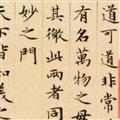 道可道非常
有名萬物之母
其徼此兩者同
妙之門